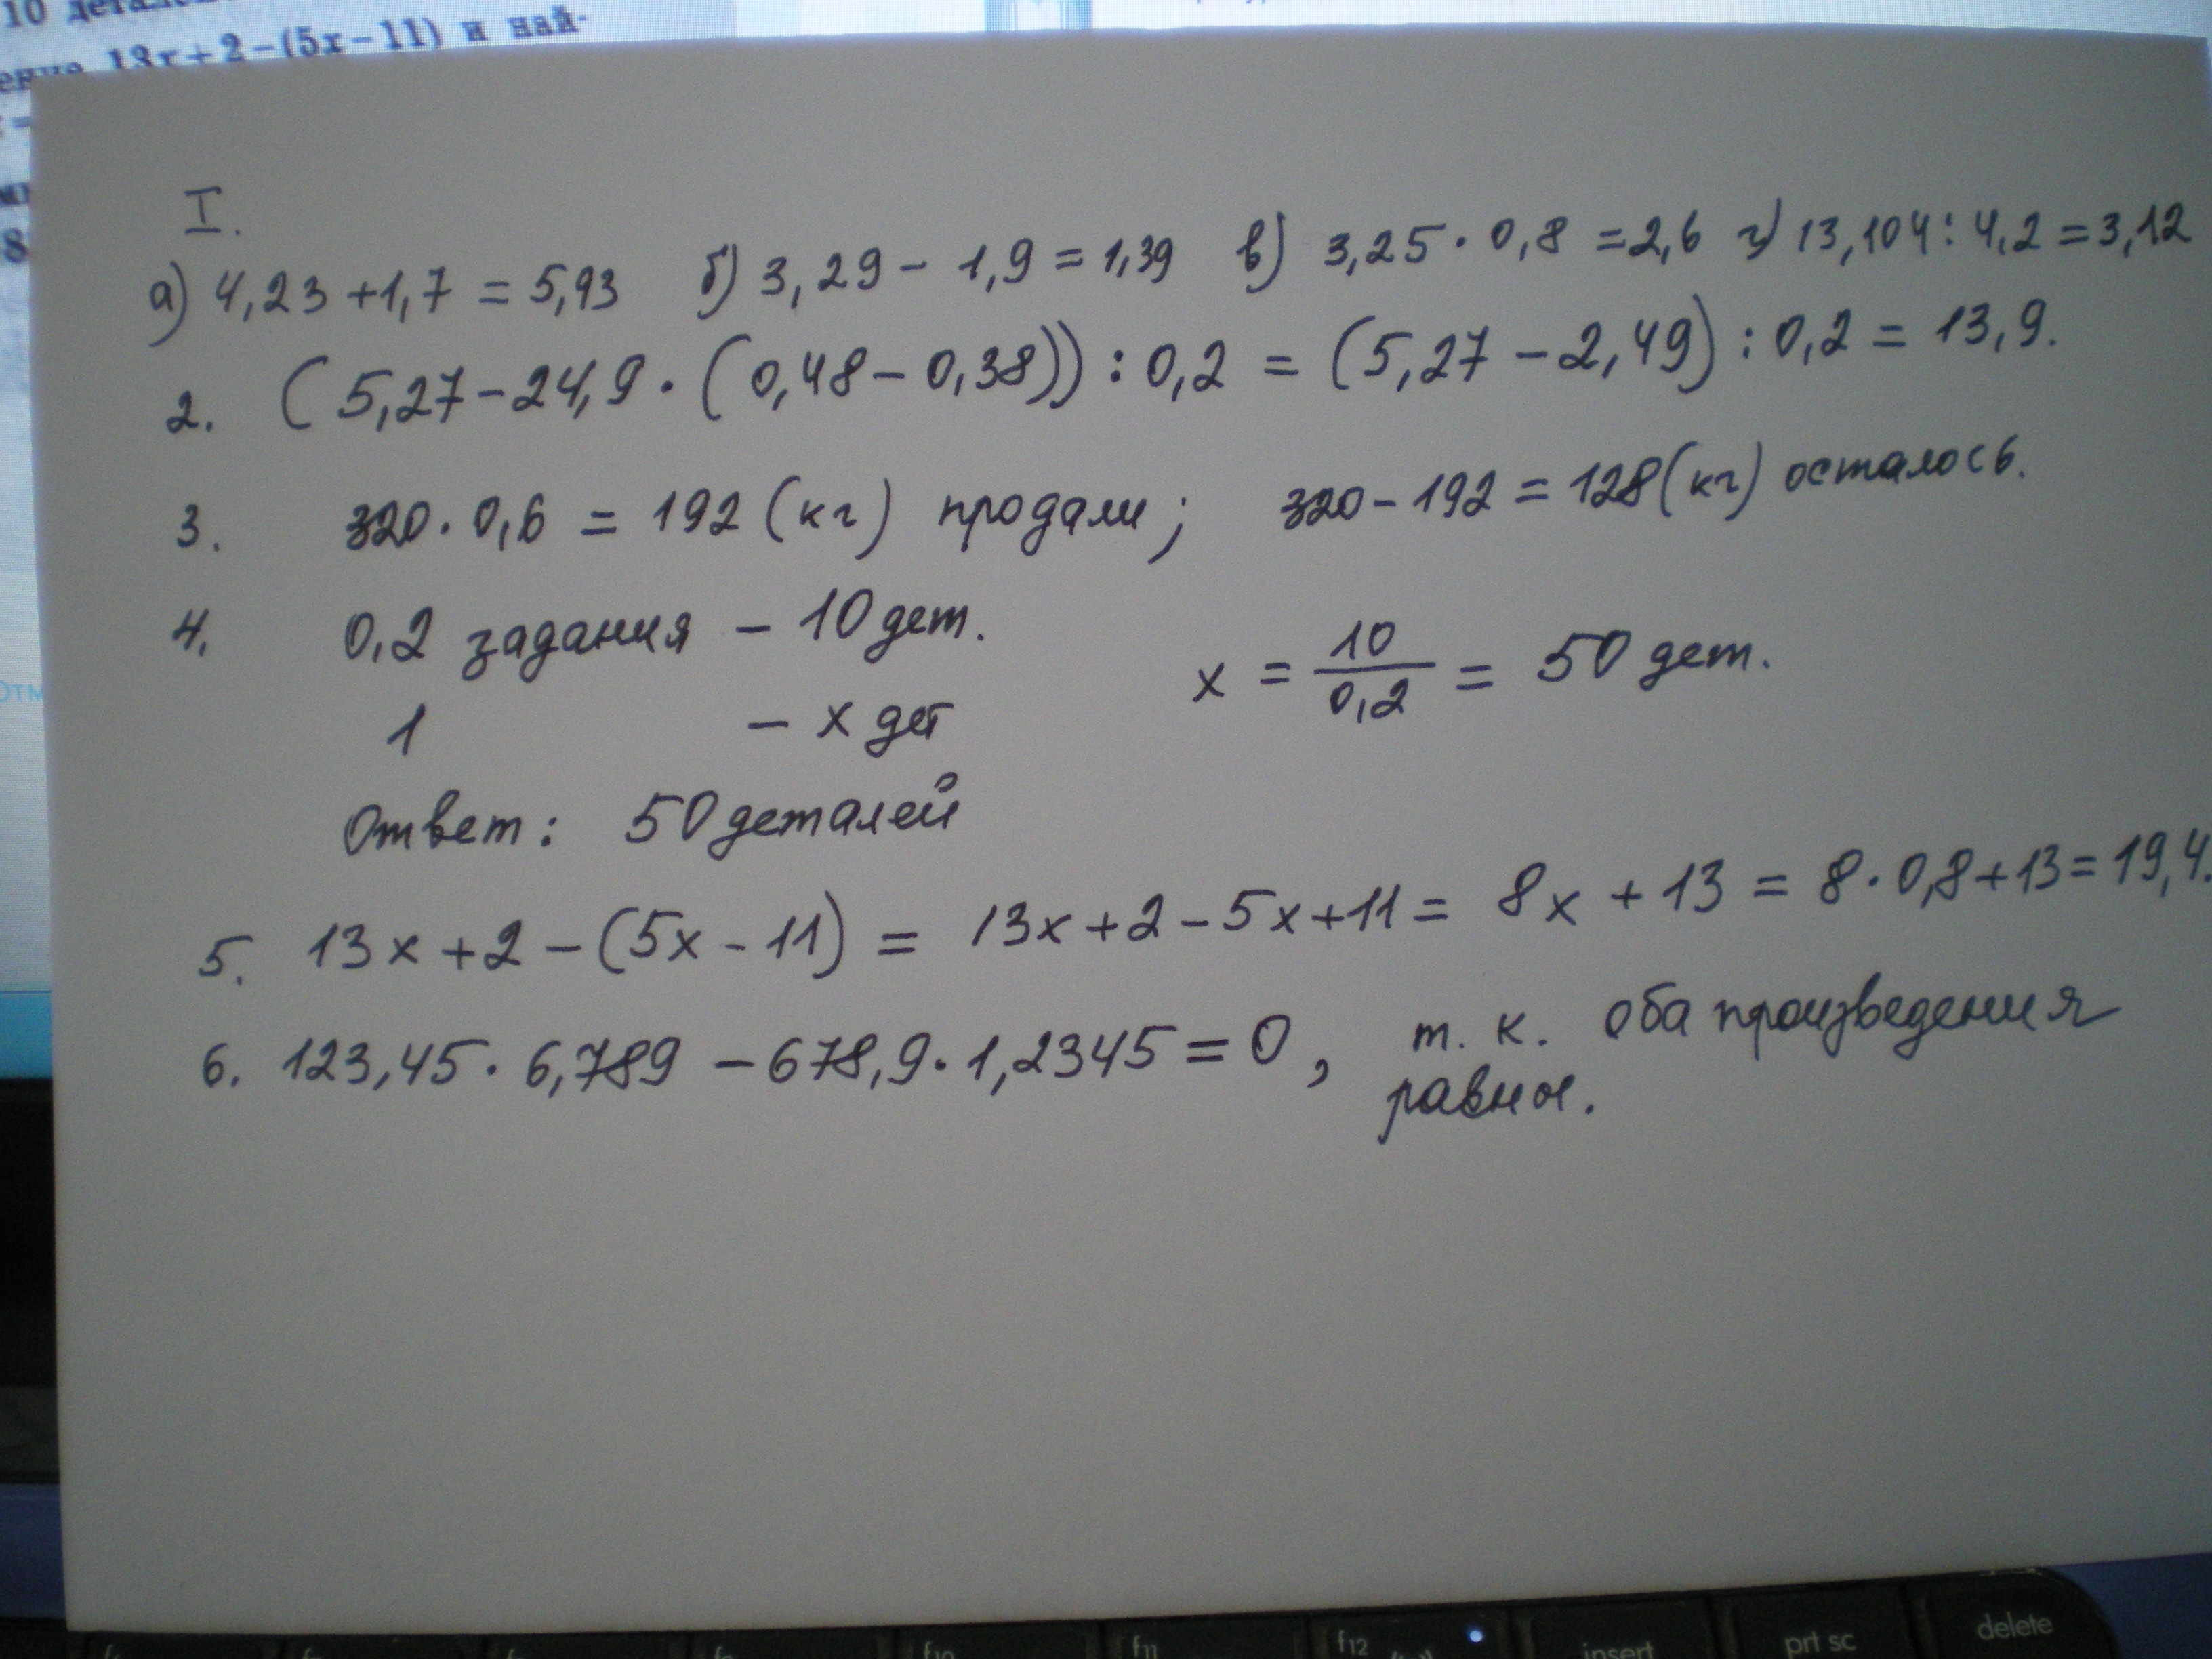 10
13x+2−(5x−11) и най-
8
I.
а) 4,23 + 1,7 = 5,93 б) 3,29 − 1,9 = 1,39 в) 3,25 · 0,8 = 2,6 г) 13,104 : 4,2 = 3,12
2. (5,27 − 24,9 · (0,48 − 0,38)) : 0,2 = (5,27 − 2,49) : 0,2 = 13,9.
3. 320 · 0,6 = 192 (кг) продали; 320 − 192 = 128 (кг) осталось.
4. 0,2 задания − 10 дет.
1 − x дет
x = 10/0,2 = 50 дет.
Ответ: 50 деталей
5. 13x + 2 − (5x − 11) = 13x + 2 − 5x + 11 = 8x + 13 = 8 · 0,8 + 13 = 19,4.
6. 123,45 · 6,789 − 678,9 · 1,2345 = 0, т. к. оба произведения
равны.
f10 f11 f12 insert prt sc delete